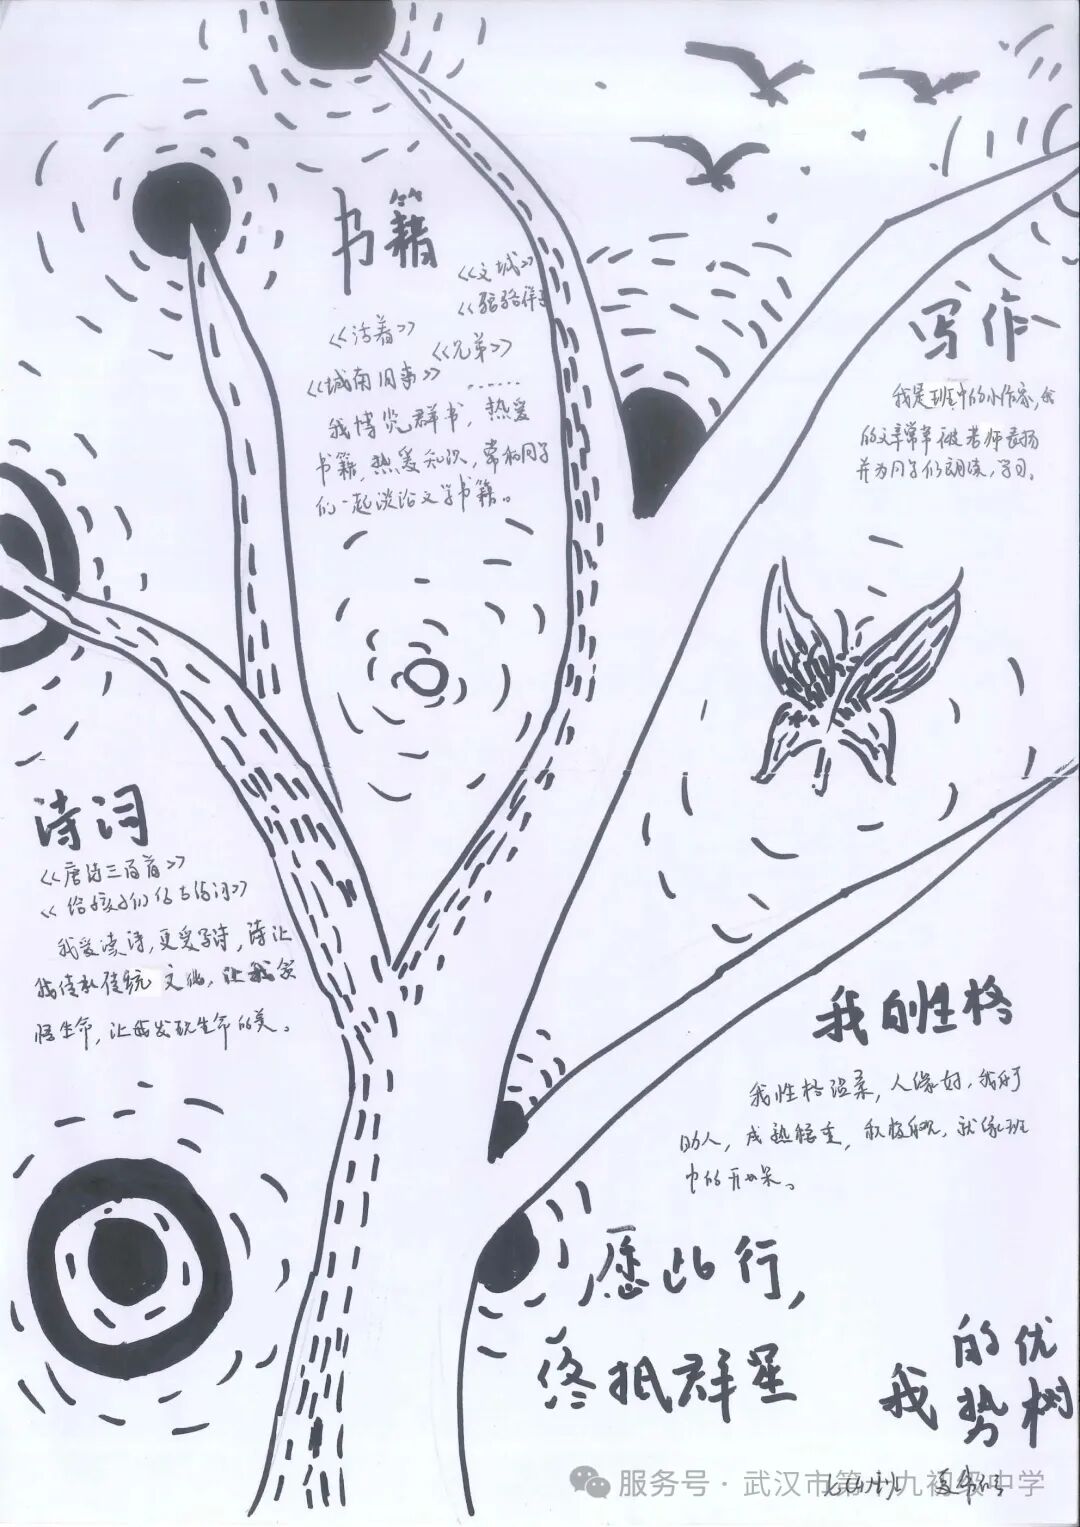 书籍
《文城》
《骆驼祥子
《活着》
《兄弟》
《城南旧事》
......
我博览群书，热爱
书籍，热爱知识，常和同学
们一起谈论文学书籍。
写作
我是班中的小作家，我
的文章常常被老师表扬
并为同学们朗读，学习。
诗词
《唐诗三百首》
《给孩子们的古诗词》
我爱读诗，更爱写诗，诗让
我传承传统文化，让我感
悟生命，让我发现生命的美。
我的性格
我性格温柔，人缘好，我乐于
助人，成熟稳重，积极乐观，就像班
中的开心果。
愿此行，
终抵群星
我的优势树
服务号·武汉市第十九初级中学